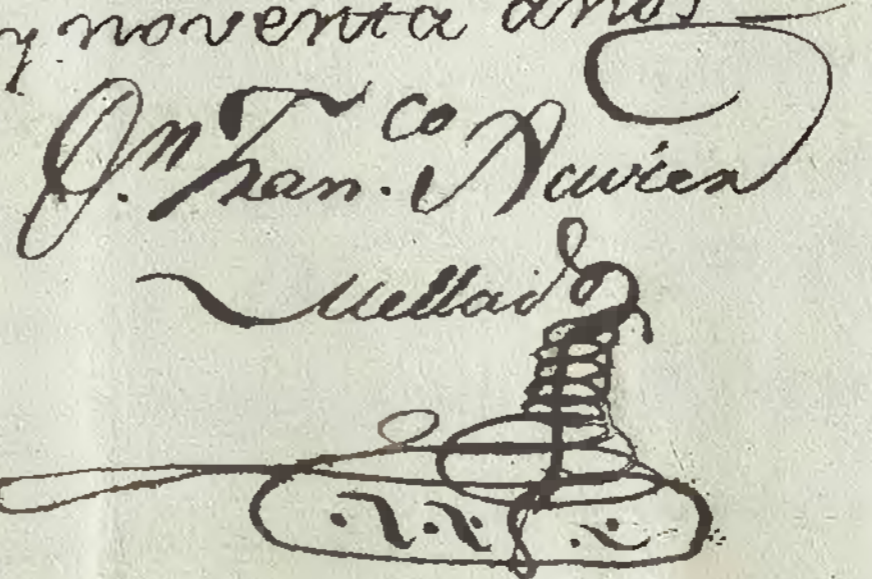 y noventa años
Dn. Franco. Xavier
Mellado